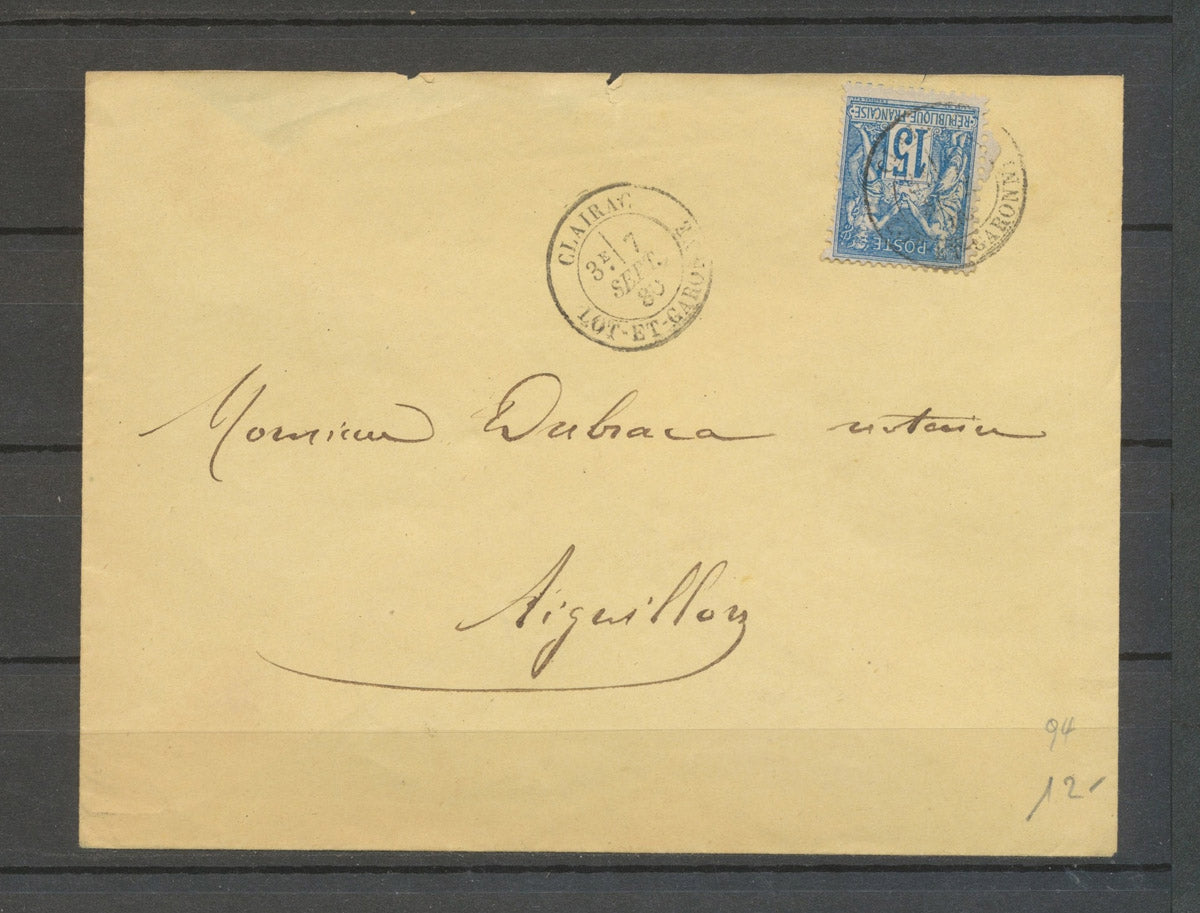 REPUBLIQUE FRANÇAISE
15
POSTE
GARONN
CLAIRAC
3E 7
SEPT.
80
LOT-ET-GARONNE
Monsieur Dubraca notaire
Aiguillon
94
12